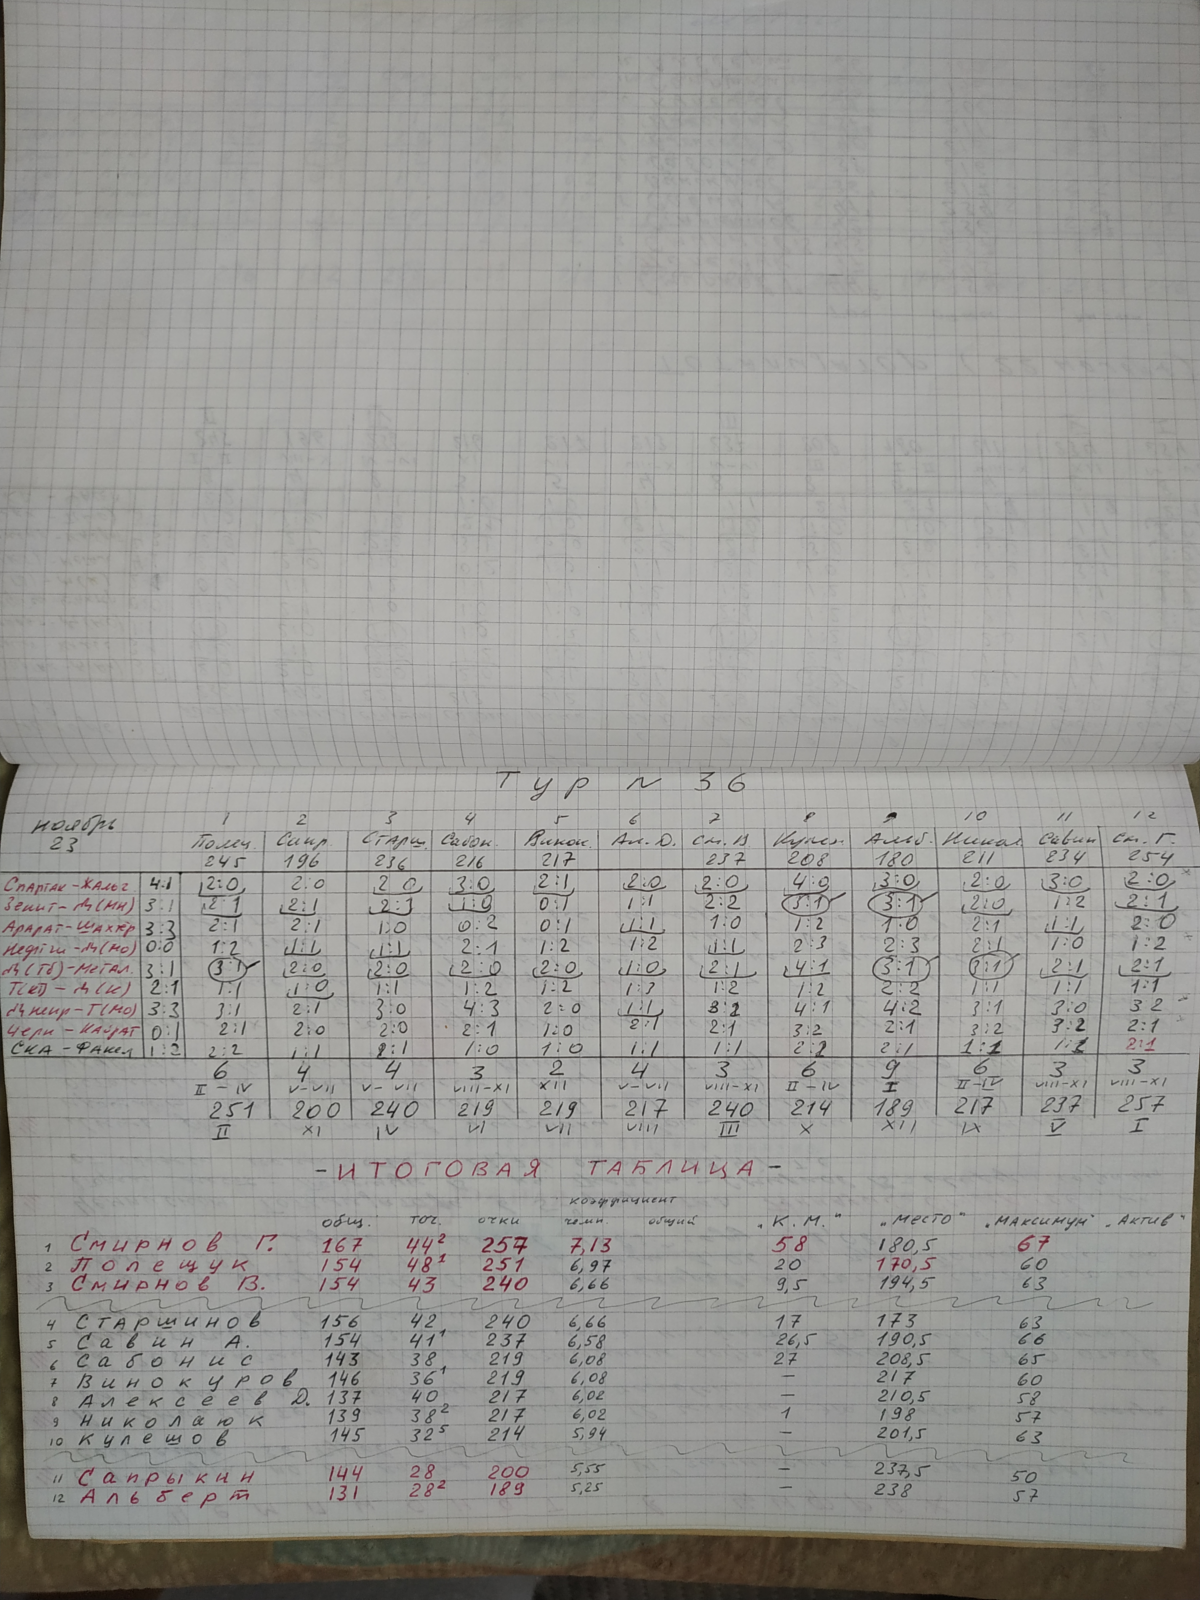 Тур № 36
ноябрь 1 2 3 4 5 6 7 8 9 10 11 12
23 Полещ. Сапр. Старш. Сабон. Винок. Ал. Д. См. В Кулеш. Альб. Никол Савин См. Г.
245 196 236 216 217 237 208 180 211 234 254
Спартак-Жальг 4:1 2:0 2:0 2:0 3:0 2:1 2:0 2:0 4:0 3:0 2:0 3:0 2:0
Зенит-Д(Мн) 3:1 2:1 2:1 2:1 1:0 0:1 1:1 2:2 3:1 3:1 2:0 1:2 2:1
Арарат-Шахтёр 3:3 2:1 2:1 1:0 0:2 0:1 1:1 1:0 1:2 1:0 2:1 1:1 2:0
Нефтчи-Д(Мо) 0:0 1:2 1:1 1:1 2:1 1:2 1:2 1:1 2:3 2:3 2:1 1:0 1:2
Д(Тб)-Метал. 3:1 3:1 2:0 2:0 2:0 2:0 1:0 2:1 4:1 3:1 3:1 2:1 2:1
Т(Кт)-Д(К) 2:1 1:1 1:0 1:1 1:2 1:2 1:3 1:2 1:2 2:2 1:1 1:1 1:1
Днепр-Т(Мо) 3:3 3:1 2:1 3:0 4:3 2:0 1:1 3:2 4:1 4:2 3:1 3:0 3:2
Черн-Кайрат 0:1 2:1 2:0 2:0 2:1 1:0 2:1 2:1 3:2 2:1 3:2 3:2 2:1
СКА-Факел 1:2 2:2 1:1 2:1 1:0 1:0 1:1 1:1 2:2 2:1 1:1 1:1 2:1
6 4 4 3 2 4 3 6 9 6 3 3
II-IV V-VII V-VII VIII-XI XII V-VII VIII-XI II-IV I II-IV VIII-XI VIII-XI
251 200 240 219 219 217 240 214 189 217 237 257
II XI IV VI VII VIII III X XII IX V I
-ИТОГОВАЯ ТАБЛИЦА-
коэффициент
общ. точ. очки чемп. общий „К.М." „Место" „Максимум" „Актив"
1 Смирнов Г. 167 44² 257 7,13 58 180,5 67
2 Полещук 154 48¹ 251 6,97 20 170,5 60
3 Смирнов В. 154 43 240 6,66 9,5 194,5 63
4 Старшинов 156 42 240 6,66 17 173 63
5 Савин А. 154 41¹ 237 6,58 26,5 190,5 66
6 Сабонис 143 38 219 6,08 27 208,5 65
7 Винокуров 146 36¹ 219 6,08 – 217 60
8 Алексеев Д. 137 40 217 6,02 – 210,5 58
9 Николаюк 139 38² 217 6,02 1 198 57
10 Кулешов 145 32⁵ 214 5,94 – 201,5 63
11 Сапрыкин 144 28 200 5,55 – 237,5 50
12 Альберт 131 28² 189 5,25 – 238 57